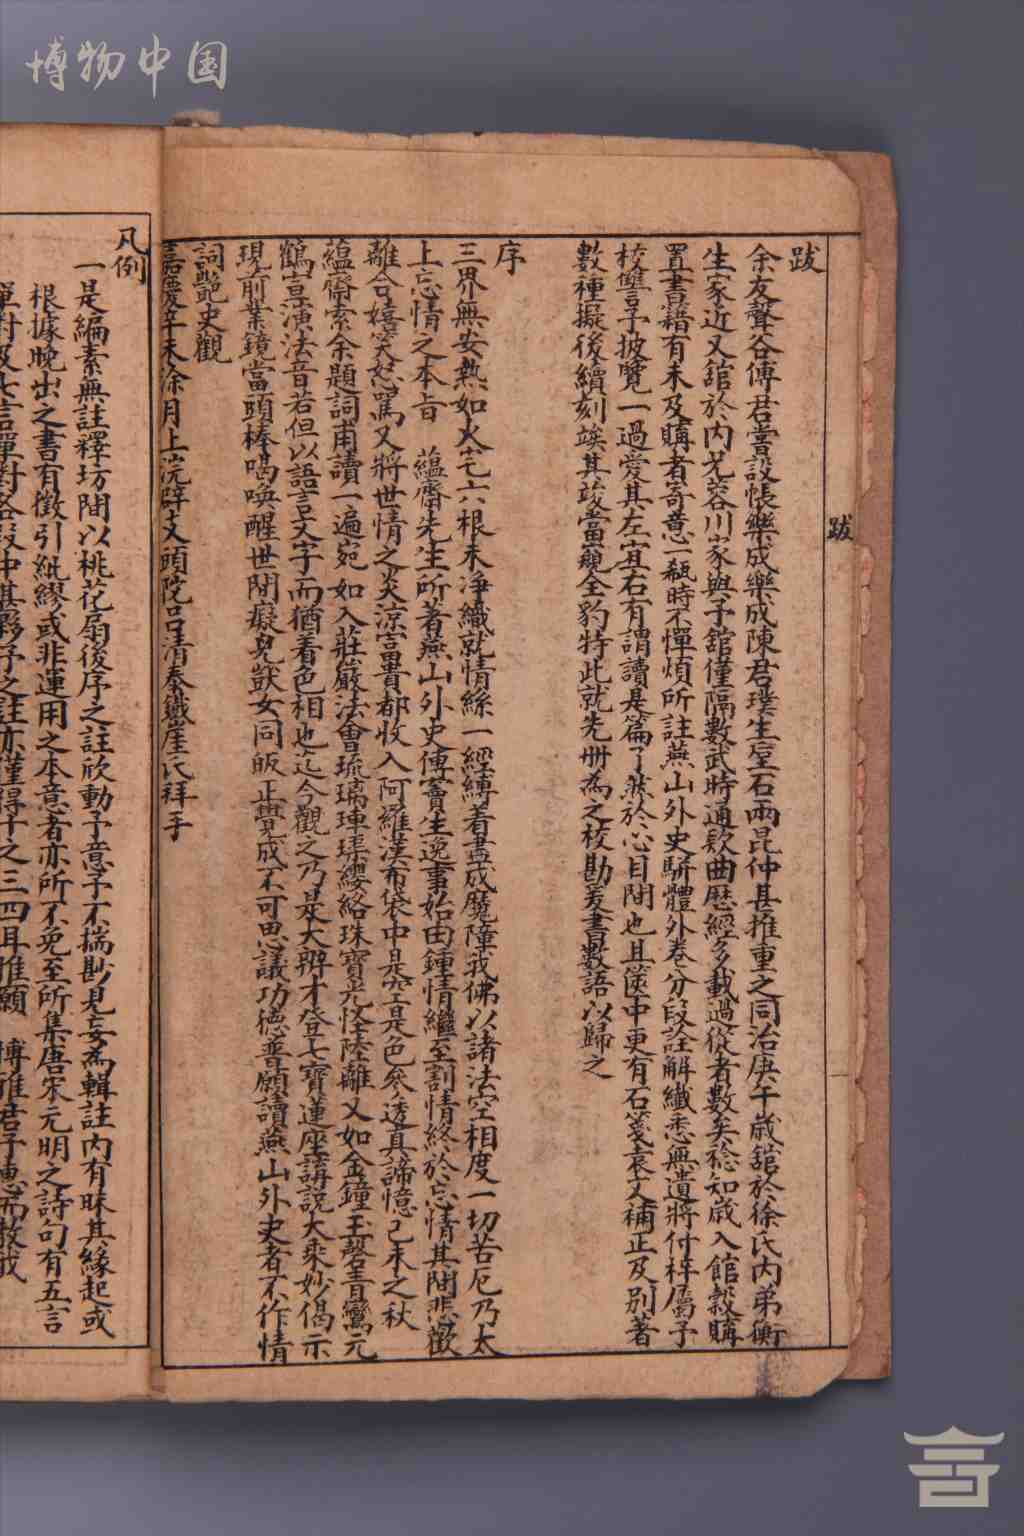 博物中国
跋
跋
余友聲谷傅君嘗設帳樂成樂成陳君璞生堊石兩昆仲甚推重之同治庚午歲舘於徐氏内弟衡
生家近又舘於内兄蓉川家與予舘僅隔數武時通款曲歷經多載過從者數矣稔知歲入館穀購
置書籍有未及購者寄意一瓻時不憚煩所註燕山外史駢體外卷分段詮解纖悉無遺將付梓屬予
校讐予披覽一過愛其左宜右有謂讀是篇了然於心目間也且篋中更有石箋袁文補正及别著
數種擬後續刻竢其竣當窺全豹特此就先册為之校勘爰書數語以歸之
序
三界無安熱如火宅六根未淨織就情絲一經縛着盡成魔障我佛以諸法空相度一切苦厄乃太
上忘情之本旨 蘊齋先生所著燕山外史傳竇生逸事始由鍾情繼至割情終於忘情其間悲歡
離合嬉笑怒駡又將世情之炎涼富貴都收入阿羅漢布袋中是空是色參透真諦憶己未之秋
蘊齋索余題詞甫讀一遍宛如入莊嚴法會琉璃硨磲纓絡珠寶光怪陸離又如金鐘玉磬青鸞元
鶴宣演法音若但以語言文字而猶着色相也迄今觀之乃是大辨才登七寶蓮座講説大乘妙偈示
現前業鏡當頭棒喝唤醒世間癡兒獃女同皈正覺成不可思議功德普願讀燕山外史者不作情
詞艷史觀
嘉慶辛未涂月上浣辟支頭陀吕清泰鐵崖氏拜手
凡例
一是編素無註釋坊間以桃花扇後序之註欣動予意予不揣尠見妄為輯註内有昧其緣起或
根據晚出之書有徵引紕繆或非運用之本意者亦所不免至所集唐宋元明之詩句有五言
單對及七言單對各段中甚夥予之註亦僅得十之三四耳惟願 博雅君子惠而教我